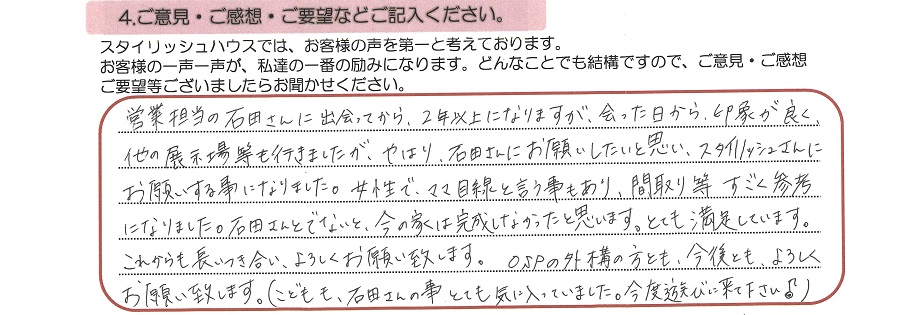 4.ご意見・ご感想・ご要望などご記入ください。
スタイリッシュハウスでは、お客様の声を第一と考えております。
お客様の一声一声が、私達の一番の励みになります。どんなことでも結構ですので、ご意見・ご感想
ご要望等ございましたらお聞かせください。
営業担当の石田さんに出会ってから、2年以上になりますが、会った日から、印象が良く、
他の展示場等も行きましたが、やはり、石田さんにお願いしたいと思い、スタイリッシュさんに
お願いする事になりました。女性で、ママ目線と言う事もあり、間取り等 すごく参考
になりました。石田さんとでないと、今の家は完成しなかったと思います。とても満足しています。
これからも長いつき合い、よろしくお願い致します。 OSPの外構の方とも、今後とも、よろしく
お願い致します。(こどもも、石田さんの事とても気に入っていました。今度遊びに来て下さい♪)